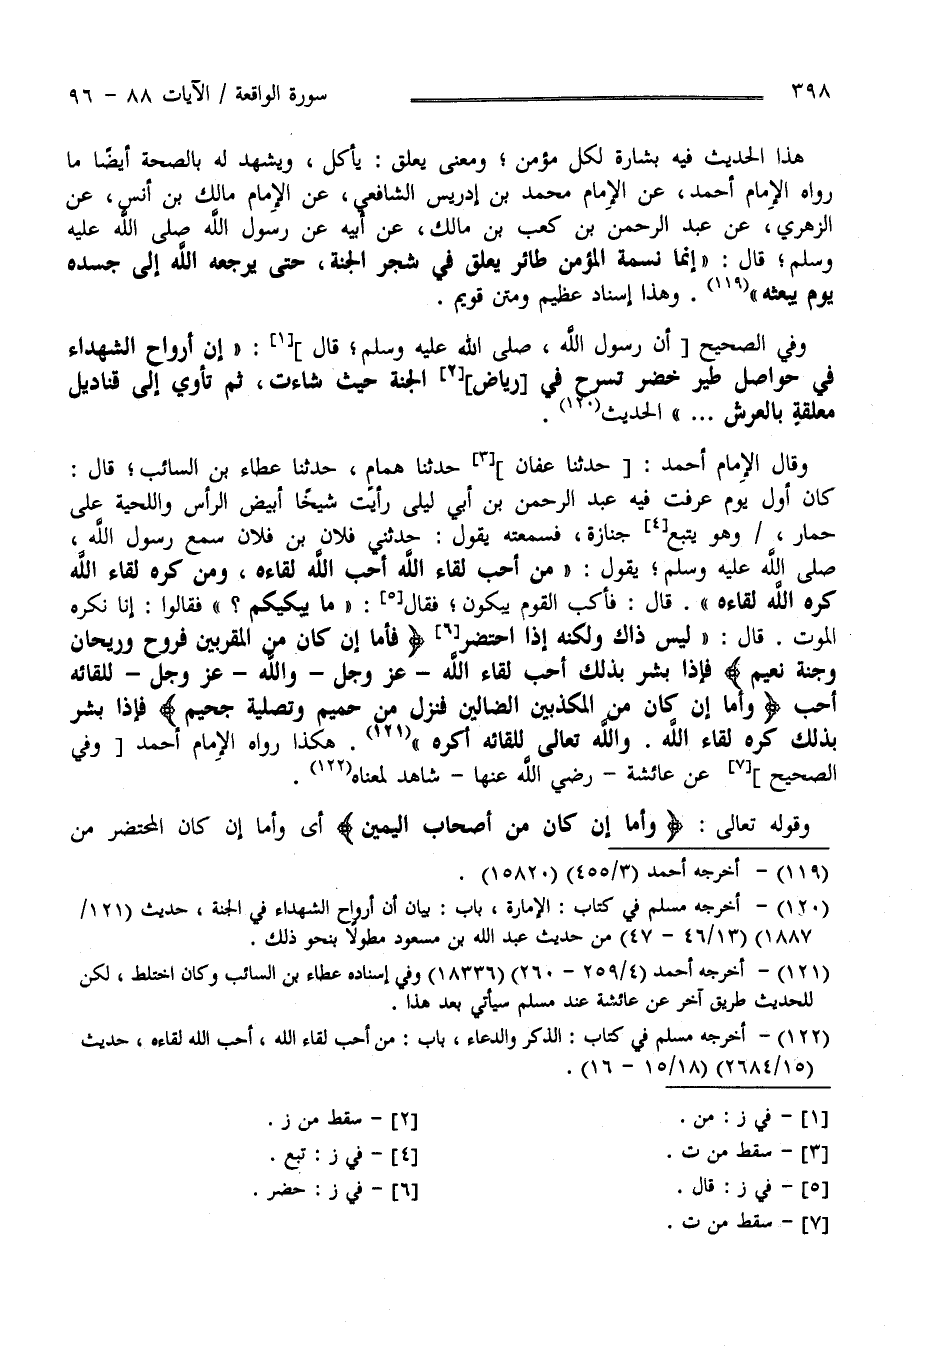 ٣٩٨ سورة الواقعة / الآيات ٨٨ - ٩٦
هذا الحديث فيه بشارة لكل مؤمن ؛ ومعنى يعلق : يأكل ، ويشهد له بالصحة أيضًا ما
رواه الإمام أحمد، عن الإمام محمد بن إدريس الشافعي، عن الإمام مالك بن أنس، عن
الزهري، عن عبد الرحمن بن كعب بن مالك، عن أبيه عن رسول اللَّه صلى اللَّه عليه
وسلم؛ قال : «إنما نسمة المؤمن طائر يعلق في شجر الجنة، حتى يرجعه اللَّه إلى جسده
يوم يبعثه»(١١٩) . وهذا إسناد عظيم ومتن قويم .
وفي الصحيح [ أن رسول اللَّه ، صلى الله عليه وسلم؛ قال ][١] : « إن أرواح الشهداء
في حواصل طير خضر تسرح في [رياض][٢] الجنة حيث شاءت، ثم تأوي إلى قناديل
معلقةٍ بالعرش ... » الحديث(١٢٠) .
وقال الإمام أحمد : [ حدثنا عفان ][٣] حدثنا همام ، حدثنا عطاء بن السائب؛ قال :
كان أول يوم عرفت فيه عبد الرحمن بن أبي ليلى رأيت شيخًا أبيض الرأس واللحية على
حمار ، / وهو يتبع[٤] جنازة، فسمعته يقول : حدثني فلان بن فلان سمع رسول اللَّه ،
صلى اللَّه عليه وسلم؛ يقول : « من أحب لقاء اللَّه أحب اللَّه لقاءه ، ومن كره لقاء اللَّه
كره اللَّه لقاءه » . قال : فأكب القوم يبكون؛ فقال[٥] : « ما يبكيكم ؟ » فقالوا : إنا نكره
الموت . قال : « ليس ذاك ولكنه إذا احتضر[٦] ﴿ فأما إن كان من المقربين فروح وريحان
وجنة نعيم ﴾ فإذا بشر بذلك أحب لقاء اللَّه - عز وجل - واللَّه - عز وجل - للقائه
أحب ﴿ وأما إن كان من المكذبين الضالين فنزل من حميم وتصلية جحيم ﴾ فإذا بشر
بذلك كره لقاء اللَّه . واللَّه تعالى للقائه أكره »(١٢١) . هكذا رواه الإمام أحمد [ وفي
الصحيح ][٧] عن عائشة - رضي اللَّه عنها - شاهد لمعناه(١٢٢) .
وقوله تعالى : ﴿ وأما إن كان من أصحاب اليمين ﴾ أى وأما إن كان المحتضر من
(١١٩) - أخرجه أحمد (٤٥٥/٣) (١٥٨٢٠) .
(١٢٠) - أخرجه مسلم في كتاب : الإمارة ، باب : بيان أن أرواح الشهداء في الجنة ، حديث (١٢١/
١٨٨٧) (٤٦/١٣ - ٤٧) من حديث عبد الله بن مسعود مطولًا بنحو ذلك .
(١٢١) - أخرجه أحمد (٢٥٩/٤ - ٢٦٠) (١٨٣٣٦) وفي إسناده عطاء بن السائب وكان اختلط ، لكن
للحديث طريق آخر عن عائشة عند مسلم سيأتي بعد هذا .
(١٢٢) - أخرجه مسلم في كتاب : الذكر والدعاء ، باب : من أحب لقاء الله ، أحب الله لقاءه ، حديث
(٢٦٨٤/١٥) (١٥/١٨ - ١٦) .
[١] - في ز : من . [٢] - سقط من ز .
[٣] - سقط من ت . [٤] - في ز : تبع .
[٥] - في ز : قال . [٦] - في ز : حضر .
[٧] - سقط من ت .